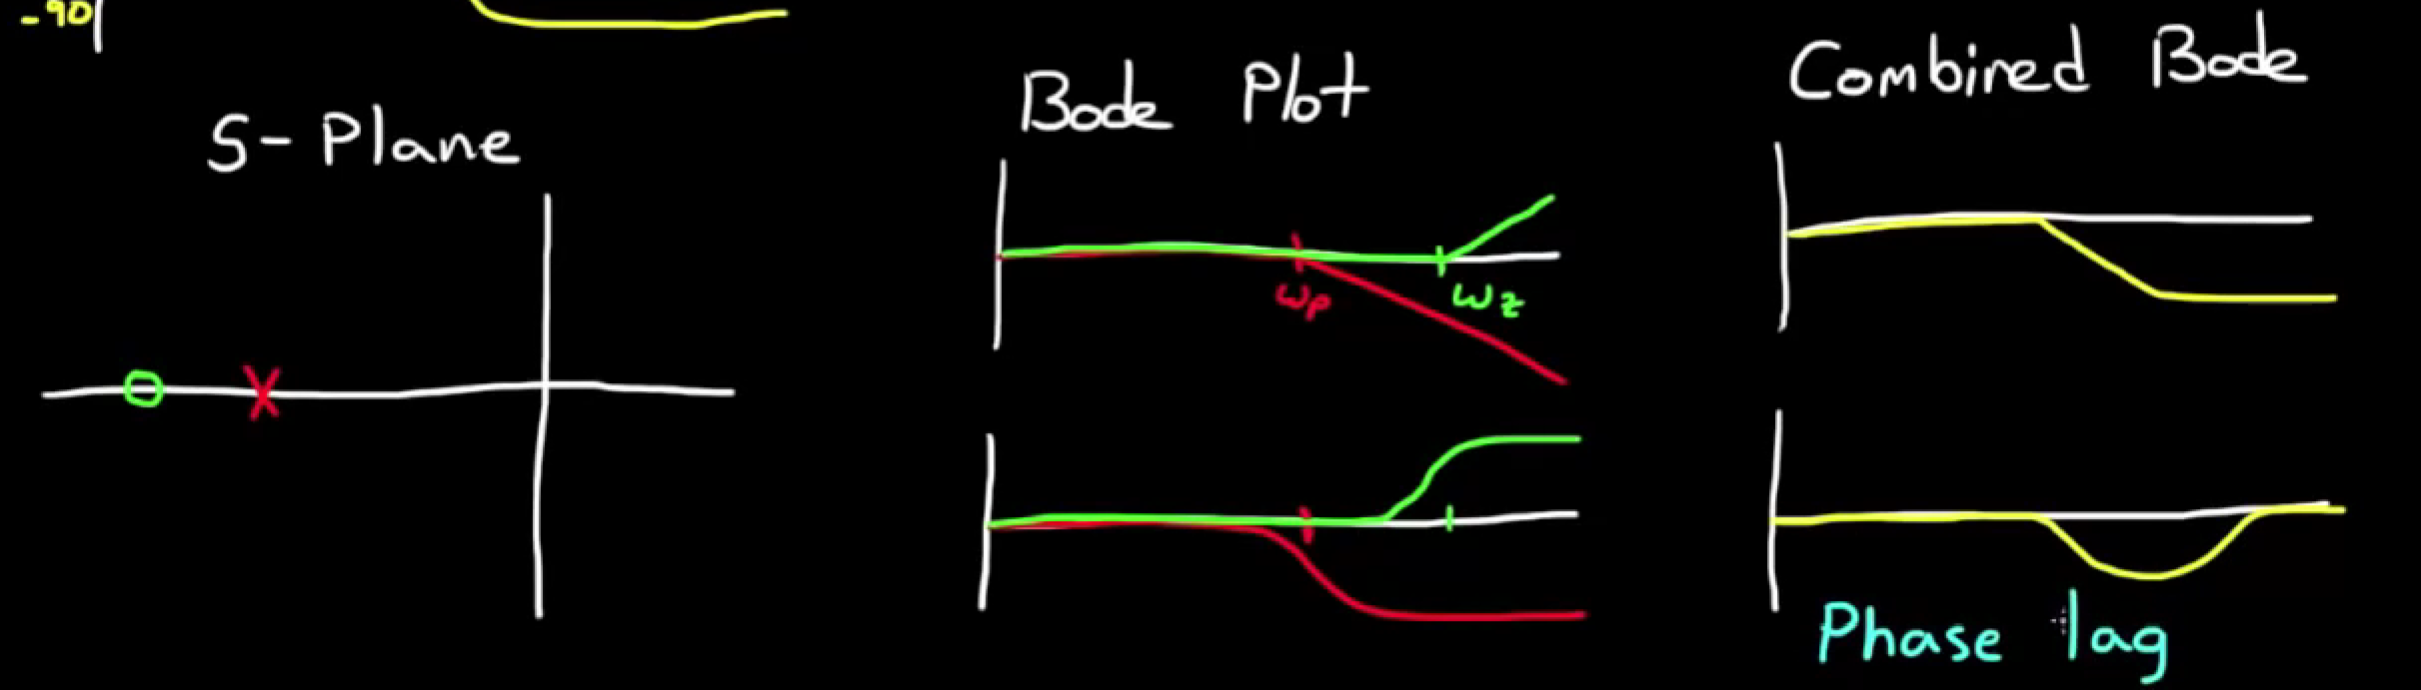 -90
S-Plane
Bode Plot
Combined Bode
ωp
ωz
Phase lag